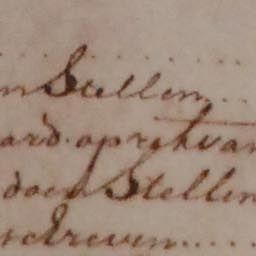 en Stellen....
aard op rehvan
doen Stellen
schreven.....